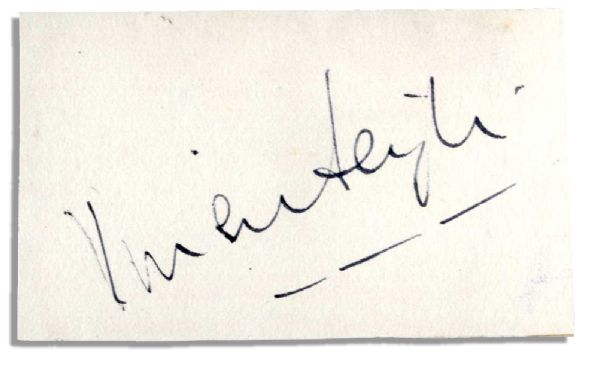 Vivien Leigh